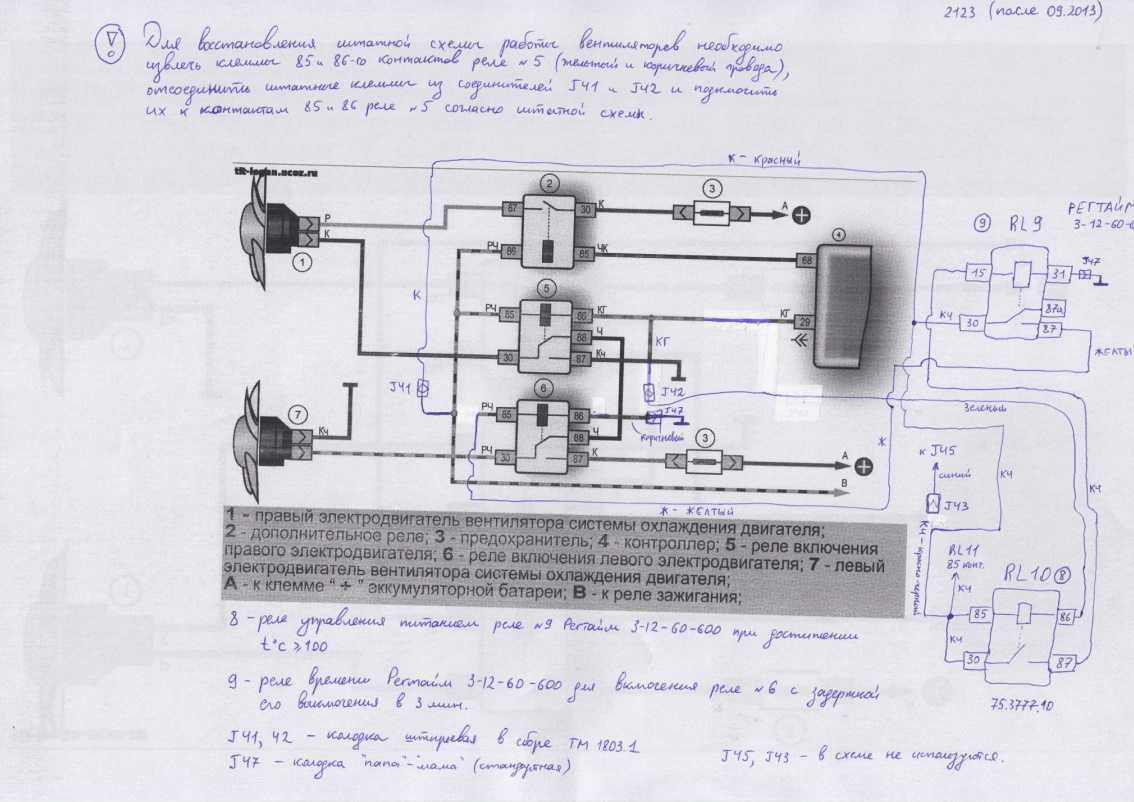 2123 (после 09.2013)
Для восстановления штатной схемы работы вентиляторов необходимо
извлечь клеммы 85 и 86-го контактов реле №5 (желтый и коричневый провода),
отсоединить штатные клеммы из соединителей J41 и J42 и подключить
их к контактам 85 и 86 реле №5 согласно штатной схемы.
К - красный
tit-logan.ucoz.ru
2
3
А
+
67
30
К
Р
К
1
РЧ
86
85
ЧК
4
68
К
5
РЧ
85
86
КГ
КГ
29
88
Ч
КГ
30
87
Кч
J41
J42
6
РЧ
85
86
J47
коричневый
88
Ч
7
Кч
РЧ
30
87
К
3
А
+
В
Ж - ЖЕЛТЫЙ
Ж
9
RL9
РЕГТАЙМ
3-12-60-6
15
31
J47
87а
КЧ
30
87
ЖЕЛТЫ
Зеленый
к J45
синий
J43
КЧ
КЧ
КЧ - красно-черный
RL11
85 конт.
КЧ
RL10
8
85
86
КЧ
30
87
75.3777.10
1 - правый электродвигатель вентилятора системы охлаждения двигателя;
2 - дополнительное реле; 3 - предохранитель; 4 - контроллер; 5 - реле включения
правого электродвигателя; 6 - реле включения левого электродвигателя; 7 - левый
электродвигатель вентилятора системы охлаждения двигателя;
А - к клемме “ + ” аккумуляторной батареи; В - к реле зажигания;
8 - реле управления питанием реле №9 Регтайм 3-12-60-600 при достижении
t°c ≥ 100
9 - реле времени Регтайм 3-12-60-600 для включения реле №6 с задержкой
его выключения в 3 мин.
J41, 42 - колодка штыревая в сборе ТМ 1803.1
J47 - колодка "папа"-"мама" (стандартная)
J45, J43 - в схеме не используются.